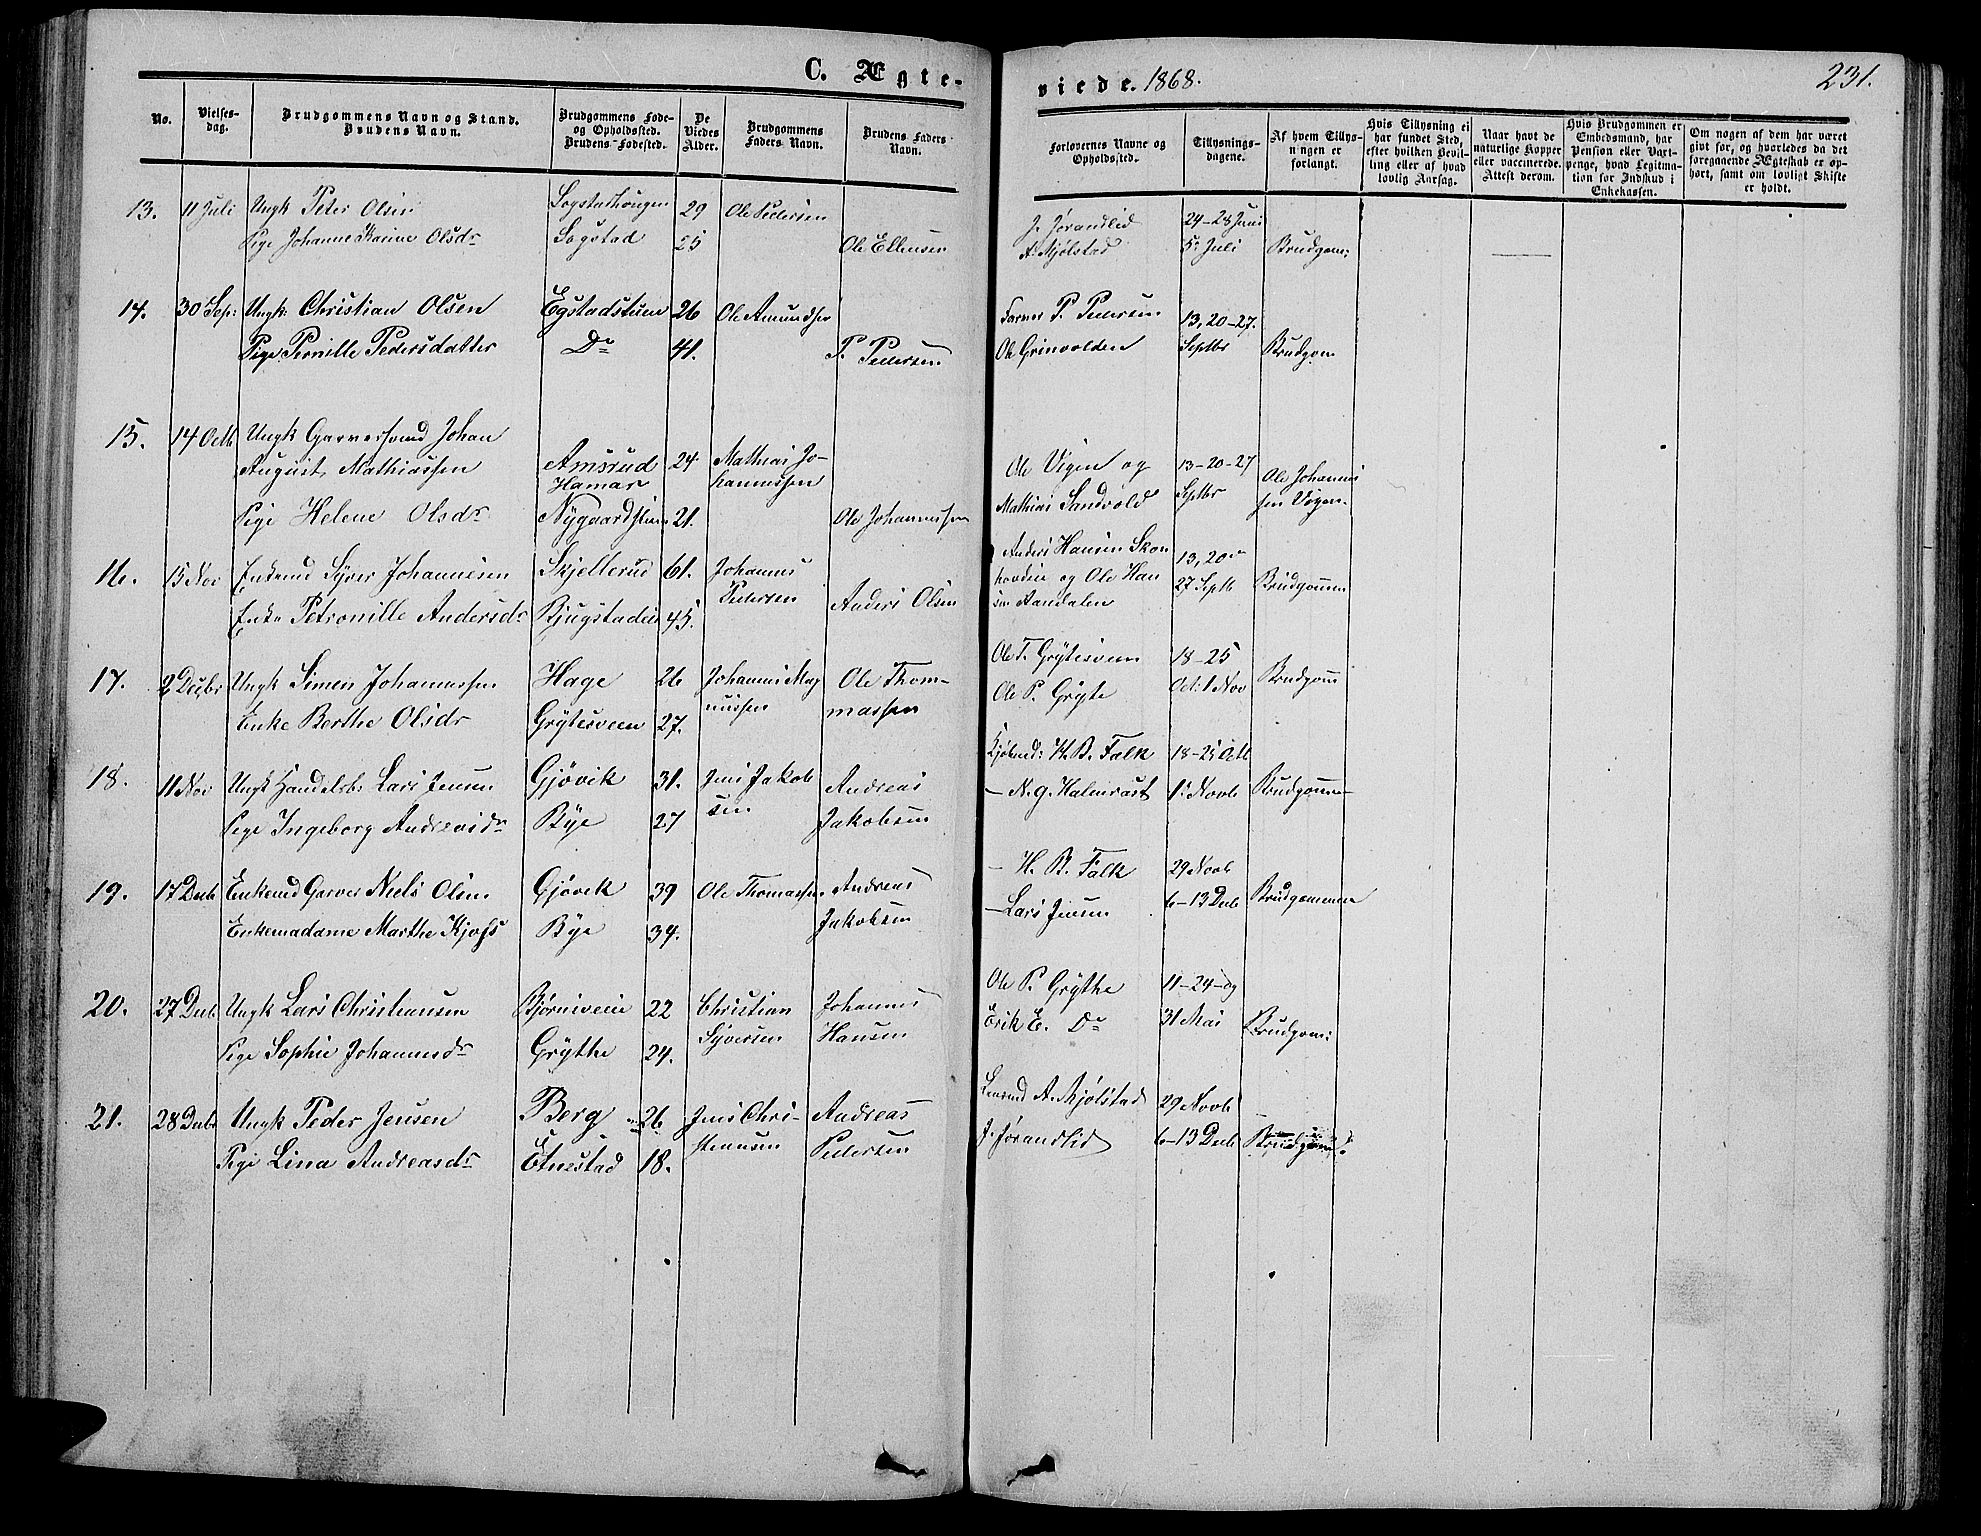 C. Ægte-
viede. 1868.
231.
No.
Vielses-
dag.
Brudgommens Navn og Stand.
Brudens Navn.
Brudgommens Føde-
og Opholdssted.
Brudens Fødested.
De
Viedes
Alder.
Brudgommens
Faders Navn.
Brudens Faders
Navn.
Forlovernes Navne og
Opholdssted.
Tillysnings-
dagene.
Af hvem Tillys-
ningen er
forlangt.
Hvis Tillysning ei
har fundet Sted,
efter hvilken Bevil-
ling eller af hvad
lovlig Aarsag.
Naar havt de
naturlige Kopper
eller vaccinerede.
Attest derom.
Hvis Brudgommen er
Embedsmand, har
Pension eller Vart-
penge, hvad Legitima-
tion for Indskud i
Enkekassen.
Om nogen af dem har været
givt før, og hvorledes da det
foregaaende Ægteskab er op-
hørt, samt om lovligt Skifte
er holdt.
13. 11 Juli Ungk Peter Olsen Sogstadhougen 29 Ole Pedersen
Pige Johanne Karine Olsdr Sogstad 25 Ole Ellensen
J. Jørandlid 24-28 Juni
A. Mjølstad 5 Juli Brudgom:
14. 30 Sep: Ungk: Christian Olsen Egstadstuen 26 Ole Amundsen
Pige Pernille Pedersdatter Do 41. P. Pedersen
Farver P. Pedersen 13, 20-27.
Ole Grinvolden Septbr Brudgom
15. 14 Octb Ungk Garversvend Johan
August Mathiassen Amsrud 24. Mathias Jo-
Hamar hannessen
Pige Helene Olsdr 21. Ole Johannessen
Ole Vigen og 13-20-27 Ole Johannes
Mathias Sandvold Septbr sen Vigen.
16. 15 Nov Enkemd Syver Johannesen Skjellerud 61. Johannes
Pedersen
Enke Petronille Andersdr Bjugstadeie 45. Anders Olsen
Anders Hansen Skon 13, 20
og Ole Han 27 Septb Brudgommen
sen Haadalen
17. 2 Decbr Ungk Simen Johannessen Hage 26 Johannes Mag Ole Thom-
nussen massen
Enke Berthe Olsdr Grytesveen 27.
Ole T. Grytesveen 18-25
Ole P. Gryte Oct: 1 Nov Brudgom
18. 11 Nov Ungk Handelsb: Lars Jensen Gjøvik 31. Jens Jakob Andreas
sen
Pige Ingeborg Andreasdr Bye 27 Jakobsen
Kjøbmd: H. B. Falk 18-25 Octb
- N. G. Halmrast 1 Novb Brudgommen
19. 17 Decb Enkemd Garver Niels Olsen Gjøvik 39 Ole Thomassen Andreas
Enkemadame Marthe Kjoss Bye 34. Jakobsen
- H. B. Falk 29 Novb
- Lars Jensen 6-13 Decb Brudgommen
20. 27 Decb Ungk Lars Christiansen Bjørnsveen 22 Christian Johannes
Pige Sophie Johannesdr Grythe 24. Syversen Hansen
Ole P. Grythe 11-24-og
Erik E. Do 31 Mai Brudgom:
21. 28 Decbr Ungk Peder Jensen Berg 26 Jens Chri- Andreas
Pige Lina Andreasdr Etnestad 18. stensen Pedersen
Lensmd A. Mjølstad 29 Novb
J. Jørandlid 6-13 Decb Brudgom: